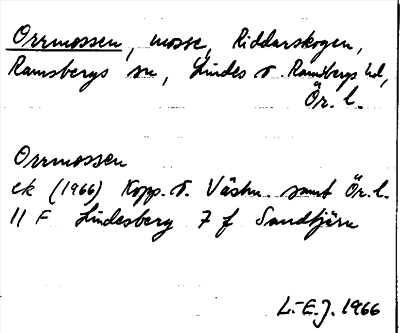 Orrmossen, mosse, Riddarskogen,
Ramsbergs sn, Lindes o. Ramsbergs hd,
Ör. l.
Orrmossen
ek (1966) Kopp. o. Västm. samt Ör. l.
11 F Lindesberg 7 f Sandtjärn
L.-E. J. 1966